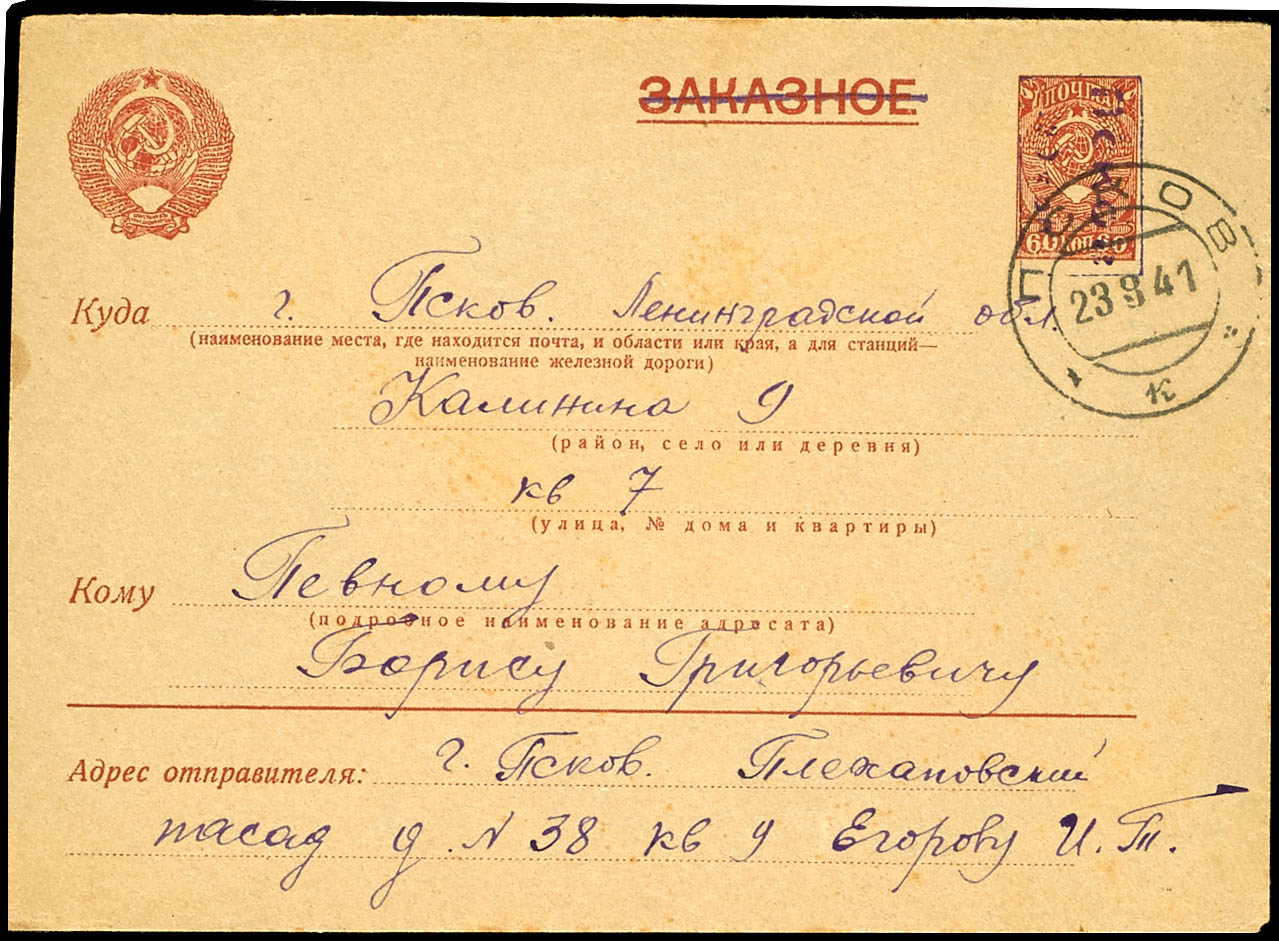 ЗАКАЗНОЕ
ПОЧТА
60 КОП 60
ПСКОВ
23 9 41
к
Куда г. Псков. Ленинградской обл.
(наименование места, где находится почта, и области или края, а для станций—
наименование железной дороги)
Калинина 9
(район, село или деревня)
кв 7
(улица, № дома и квартиры)
Кому Певному
(подробное наименование адресата)
Борису Григорьевичу
Адрес отправителя: г. Псков. Плехановский
пасад д. N 38 кв 9 Егорову И. Т.